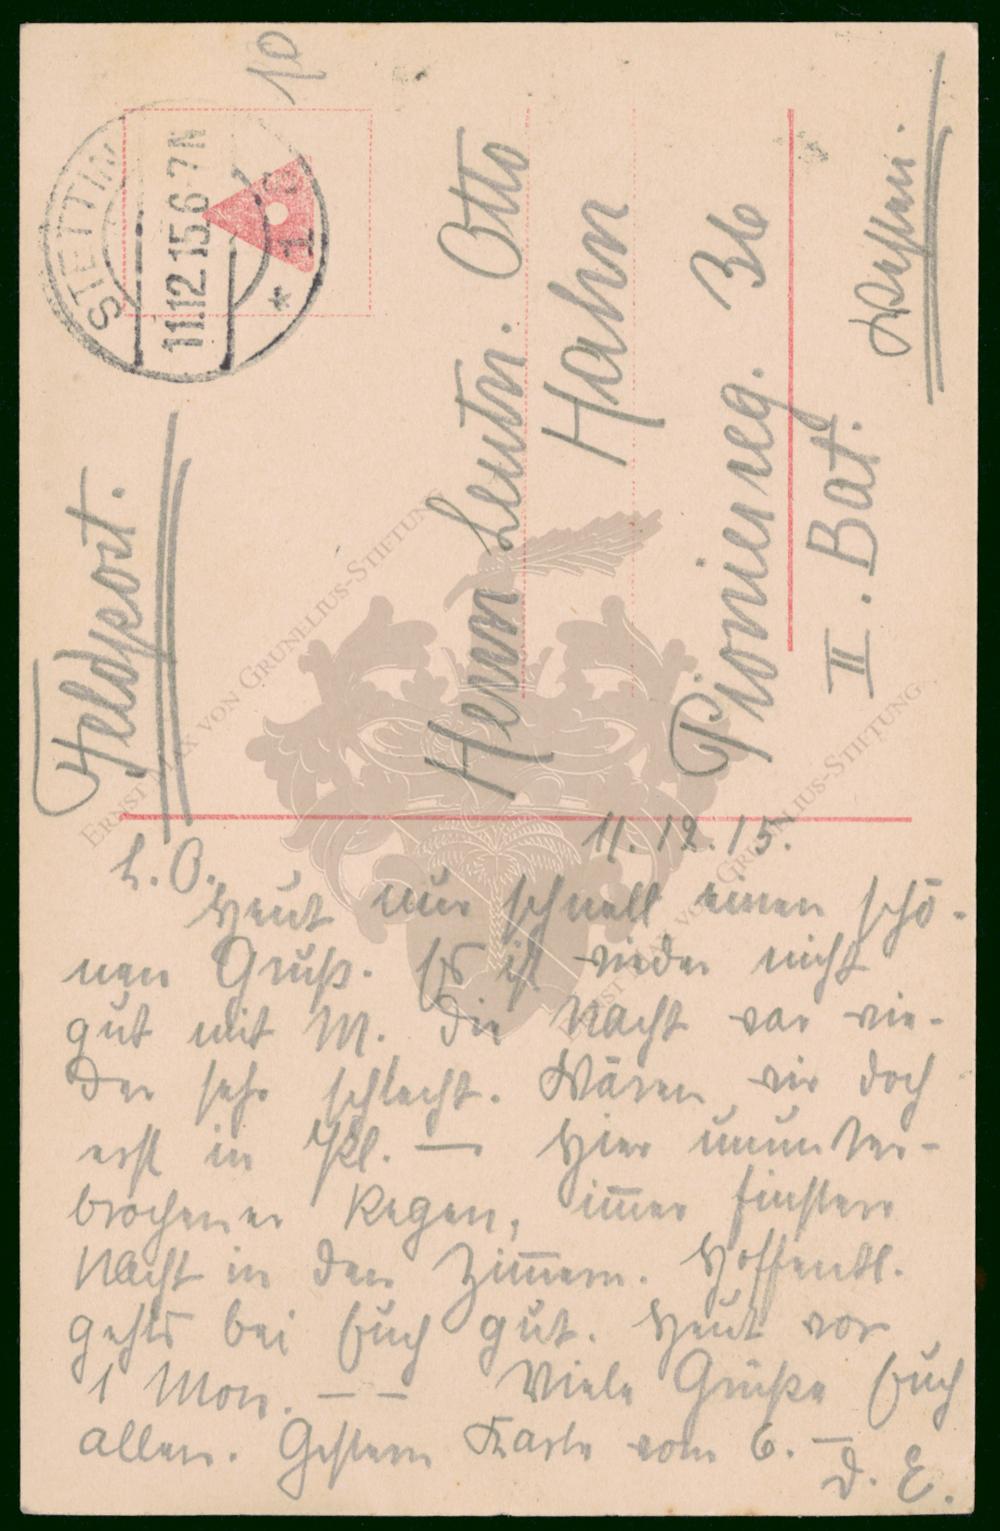 10
STETTIN
11.12.15.6-7N
* 1 c
Feldpost.
Herrn Leutn. Otto
Hahn
Pionierreg. 36
II. Bat.
Westen.
L. O.
11.12.15.
Heut nur schnell einen schö-
nen Gruß. Es ist wieder nicht
gut mit M. Die Nacht war wie-
der sehr schlecht. Wären wir doch
erst in Kl. — Hier ununter-
brochener Regen, immer finstere
Nacht in den Zimmern. Hoffentl.
gehts bei Euch gut. Heut vor
1 Mon. — — Viele Grüße Euch
allen. Gestern Karte vom 6. —
D. E.
ERNST MAX VON GRUNELIUS-STIFTUNG
ERNST MAX VON GRUNELIUS-STIFTUNG